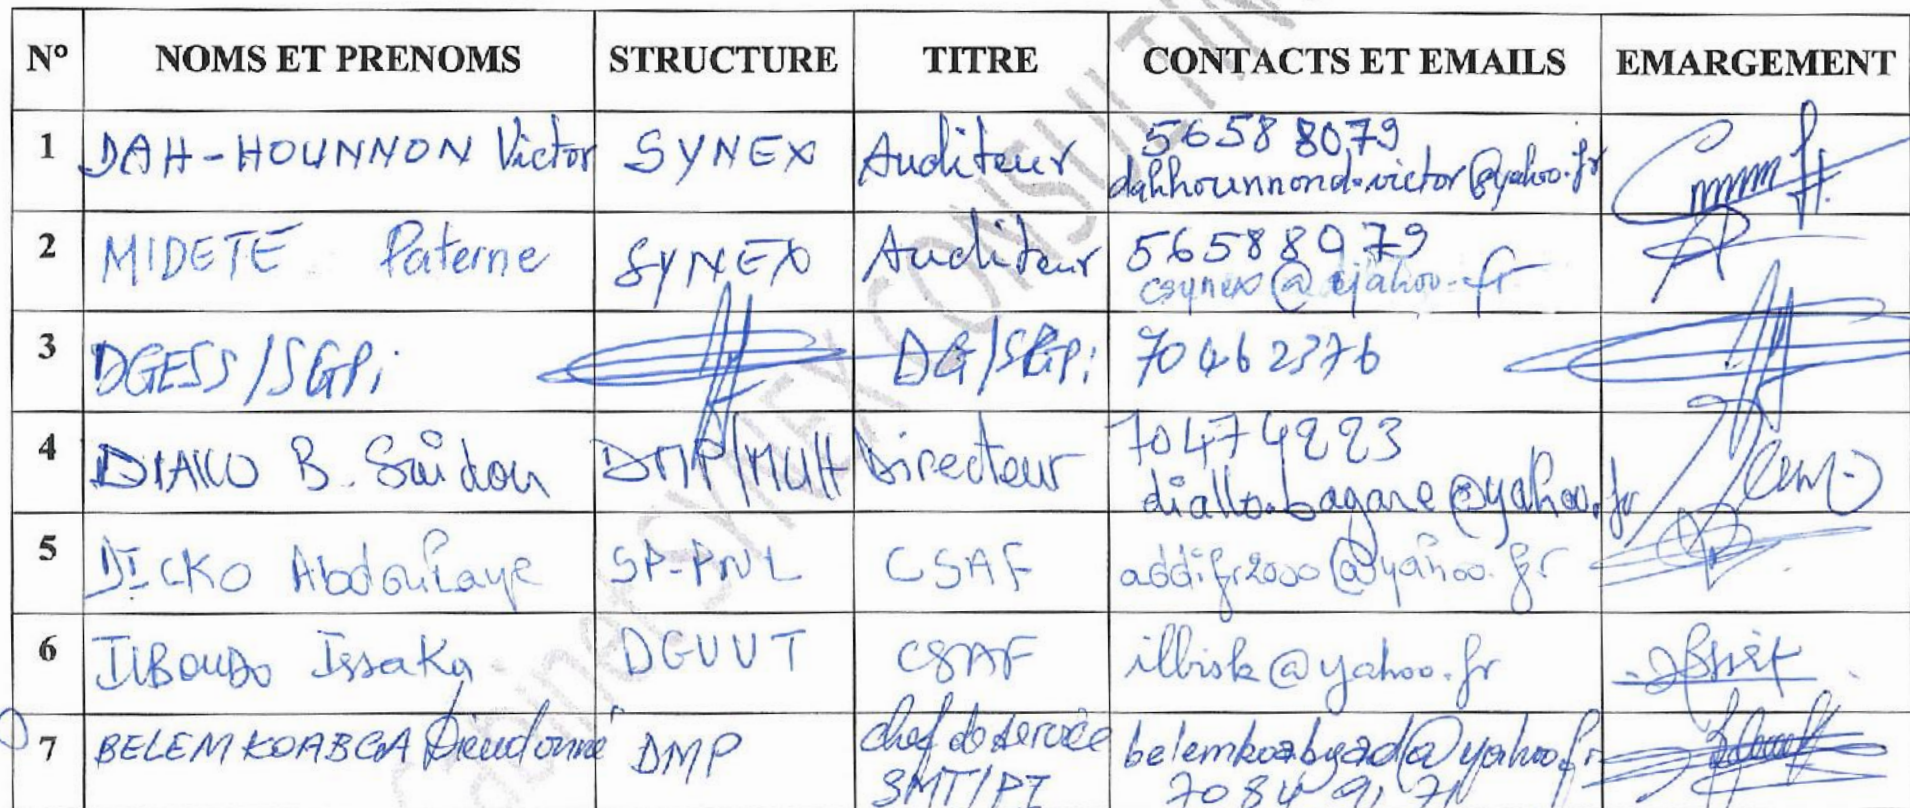 N° NOMS ET PRENOMS STRUCTURE TITRE CONTACTS ET EMAILS EMARGEMENT
1 DAH-HOUNNON Victor SYNEX Auditeur 56588079
dahhounnond.victor@yahoo.fr
2 MIDETE Paterne SYNEX Auditeur 56588079
csynex@yahoo.fr
3 DGESS/SGPi DG/SGPi 70462376
4 DIALLO B. Saïdou DMP/MUH Directeur 70474223
diallo.bagare@yahoo.fr
5 DICKO Abdoulaye SP-PNL CSAF addifr2000@yahoo.fr
6 ILBOUDO Issaka DGUVT CSAF illbisk@yahoo.fr
7 BELEMKOABGA Dieudonné DMP chef de service belemkoabgad@yahoo.fr
SMT/PI 7084 71
Cabinet SYNEX CONSULTING